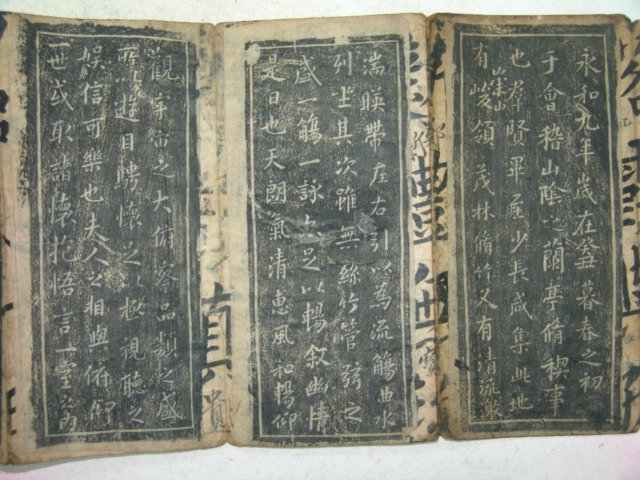 永和九年歲在癸丑暮春之初
于會稽山陰之蘭亭脩稧事
也群賢畢至少長咸集此地
有崇山峻領茂林脩竹又有清流激
湍暎帶左右引以為流觴曲水
列坐其次雖無絲竹管弦之
盛一觴一詠亦足以暢敘幽情
是日也天朗氣清惠風和暢仰
觀宇宙之大俯察品類之盛
所以遊目騁懷足以極視聽之
娛信可樂也夫人之相與俯仰
一世或取諸懷抱悟言一室之內